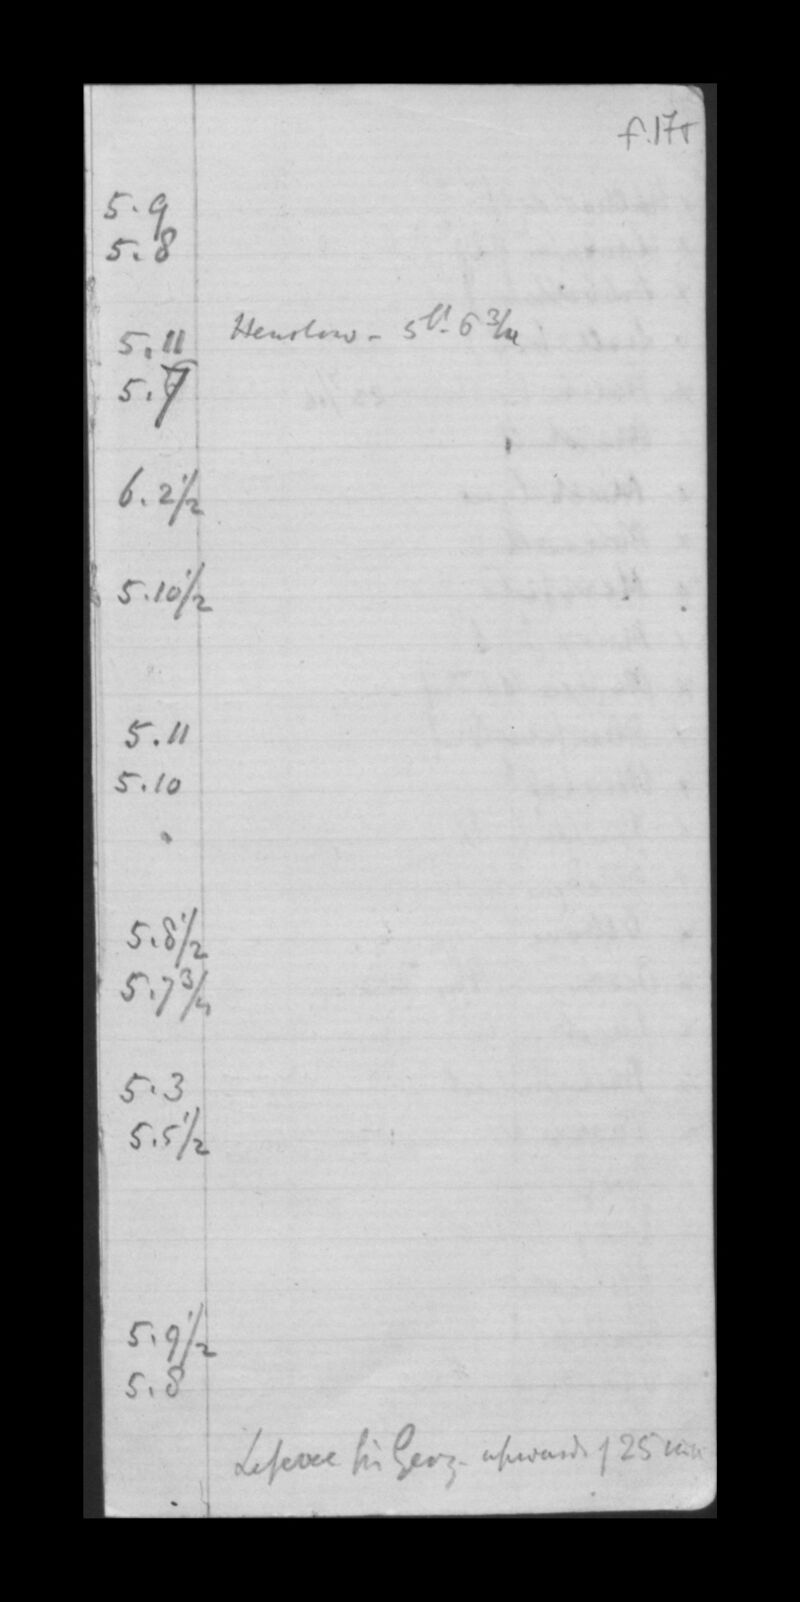 f.17v
5.9
5.8
5.11 Henslow - 5ft. 6 3/4
5.7
6.2 1/2
5.10 1/2
5.11
5.10
5.8 1/2
5.7 3/4
5.3
5.5 1/2
5.9 1/2
5.8
Lefevre Sir Geo. upwards of 25 min